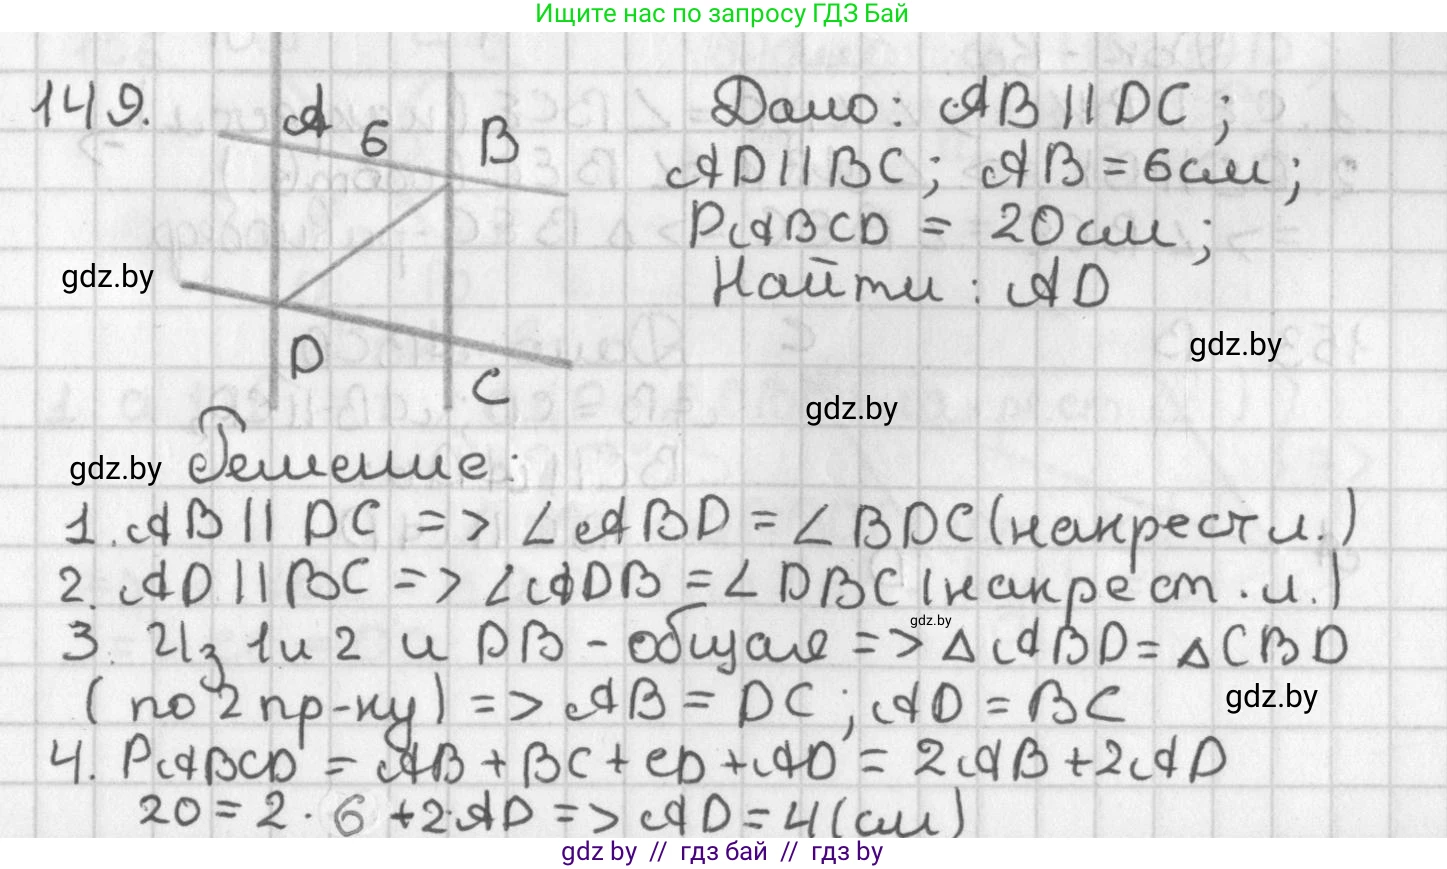 Ищите нас по запросу ГДЗ Бай
149.
A 6 B
D C
Дано: AB || DC ;
AD || BC ; AB = 6 см ;
PABCD = 20 см ;
Найти : AD
gdz.by
gdz.by
gdz.by
gdz.by
Решение:
1. AB || DC => ∠ABD = ∠BDC (накрест л.)
2. AD || BC => ∠ADB = ∠DBC (накрест. л.)
gdz.by
3. Из 1 и 2 и DB - общая => △ABD = △CBD
(по 2 пр-ку) => AB = DC ; AD = BC
gdz.by
4. PABCD = AB + BC + CD + AD = 2AB + 2AD
20 = 2 · 6 + 2·AD => AD = 4 (см)
gdz by // гдз бай // гдз by